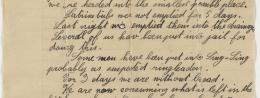 me, we herded into the smallest possible place.
Latrine tubs were not emptied for 5 days.
Last night we emptied them into the drains.
Several of us have been put into jail for
doing this.
Some men have been put into Sing-Sing
probably as suspected ringleaders.
For 3 days we are without bread.
We are now consuming what is left in the